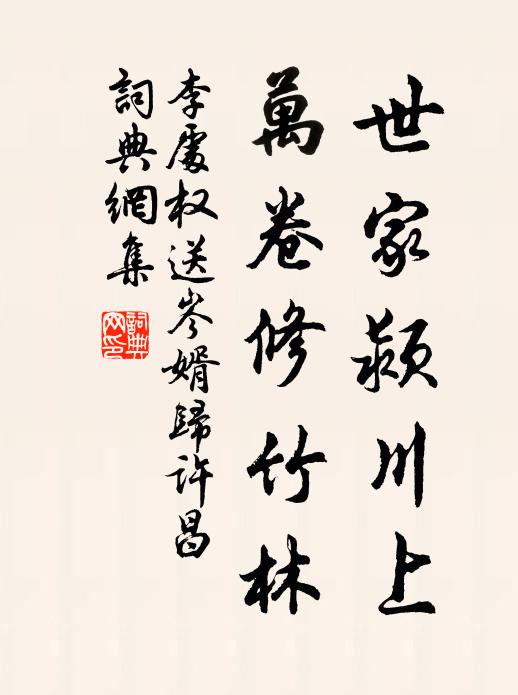 世家潁川上
萬卷修竹林
李處权送岑婿歸許昌
詞典網集
詞典網印